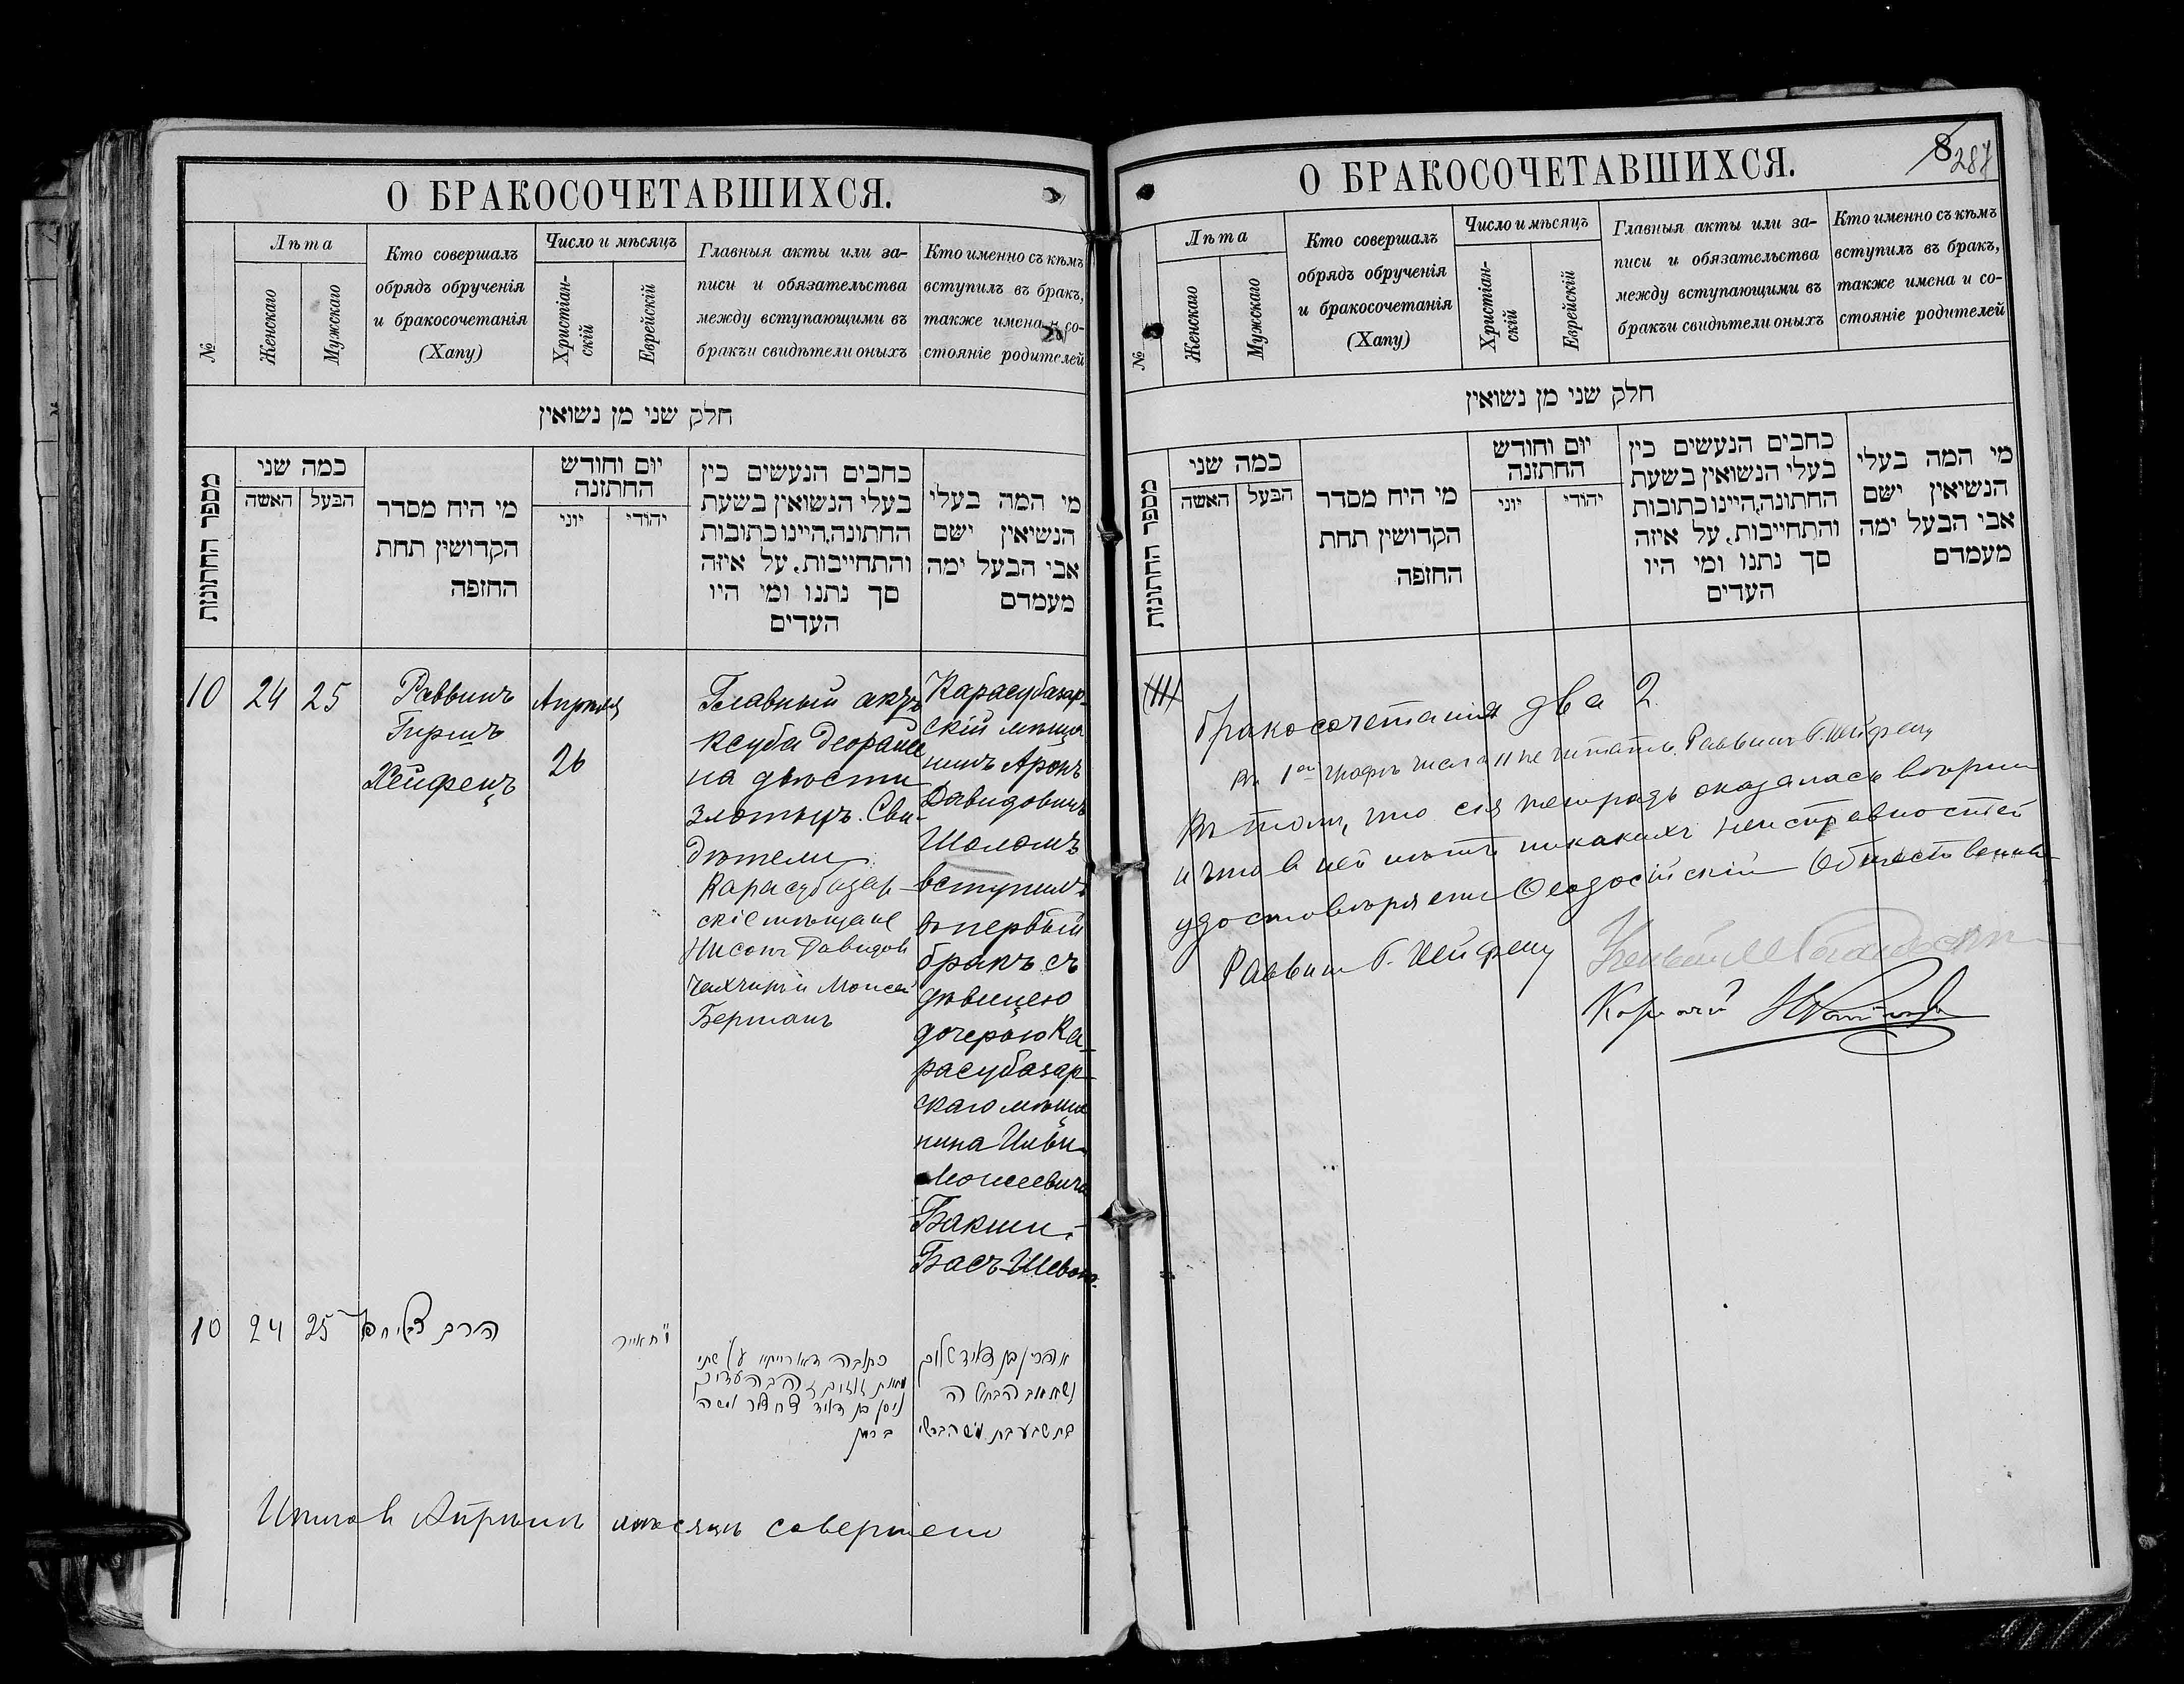 О БРАКОСОЧЕТАВШИХСЯ.
№
Лѣта
Женскаго
Мужскаго
Кто совершалъ
обрядъ обрученія
и бракосочетанія
(Хапу)
Число и мѣсяцъ
Христіан-
скій
Еврейскій
Главныя акты или за-
писи и обязательства
между вступающими въ
бракъи свидѣтели оныхъ
Кто именно съ кѣмъ
вступилъ въ бракъ,
также имена и со-
стояніе родителей
חלק שני מן נשואין
מספר החתונות
כמה שני
האשה
הבעל
מי היח מסדר
הקדושין תחת
החזפה
יום וחודש
החתזנה
יוני
יהודי
כחבים הנעשים כין
בעלי הנשואין בשעת
החתונה,היינו כתובות
והתחייבות, על איזה
סך נתנו ומי היו
העדים
מי המה בעלי
הנשיאין ישם
אבי הבעל ימה
מעמדם
10
24
25
Раввинъ
Гиршъ
Хейфецъ
Апрѣля
26
Главный актъ
ксуба деорайсе
на двѣсти
злотыхъ. Сви-
дѣтели
Карасубазар-
скіе мѣщане
Нисонъ Давидов
и Моисей
Берманъ
Карасубазар-
скій мѣща
нинъ Аронъ
Давидовичъ
Шоломъ
вступилъ
въ первый
бракъ съ
дѣвицею
дочерью Ка-
расубазар-
скаго мѣща
нина
Моисеевича
Бакши-
Басъ-Шевою
10
24
25
הרב
אייר
כתובה דאורייתא על שתי
מאות זוזים
ניסן בן דאוד משה
ברמן
אהרן בן דאוד שלום
הבתולה
בת שבע בת
Итого в Апрѣлѣ мѣсяцѣ совершено
О БРАКОСОЧЕТАВШИХСЯ.
8
287
№
Лѣта
Женскаго
Мужскаго
Кто совершалъ
обрядъ обрученія
и бракосочетанія
(Хапу)
Число и мѣсяцъ
Христіан-
скій
Еврейскій
Главныя акты или за-
писи и обязательства
между вступающими въ
бракъи свидѣтели оныхъ
Кто именно съ кѣмъ
вступилъ въ бракъ,
также имена и со-
стояніе родителей
חלק שני מן נשואין
מספר החתונות
כמה שני
האשה
הבעל
מי היח מסדר
הקדושין תחת
החזפה
יום וחודש
החתזנה
יוני
יהודי
כחבים הנעשים כין
בעלי הנשואין בשעת
החתונה,היינו כתובות
והתחייבות, על איזה
סך נתנו ומי היו
העדים
מי המה בעלי
הנשיאין ישם
אבי הבעל ימה
מעמדם
бракосочетанія два 2
Въ 1ой графѣ числа 11 не читать. Раввинъ Г. Хейфецъ
Въ томъ, что сія тетрадь оказалась вѣрна
и что в ней нѣтъ никакихъ неисправностей
удостовѣряетъ Ѳеодосійскій Общественный
Раввинъ Г. Хейфецъ